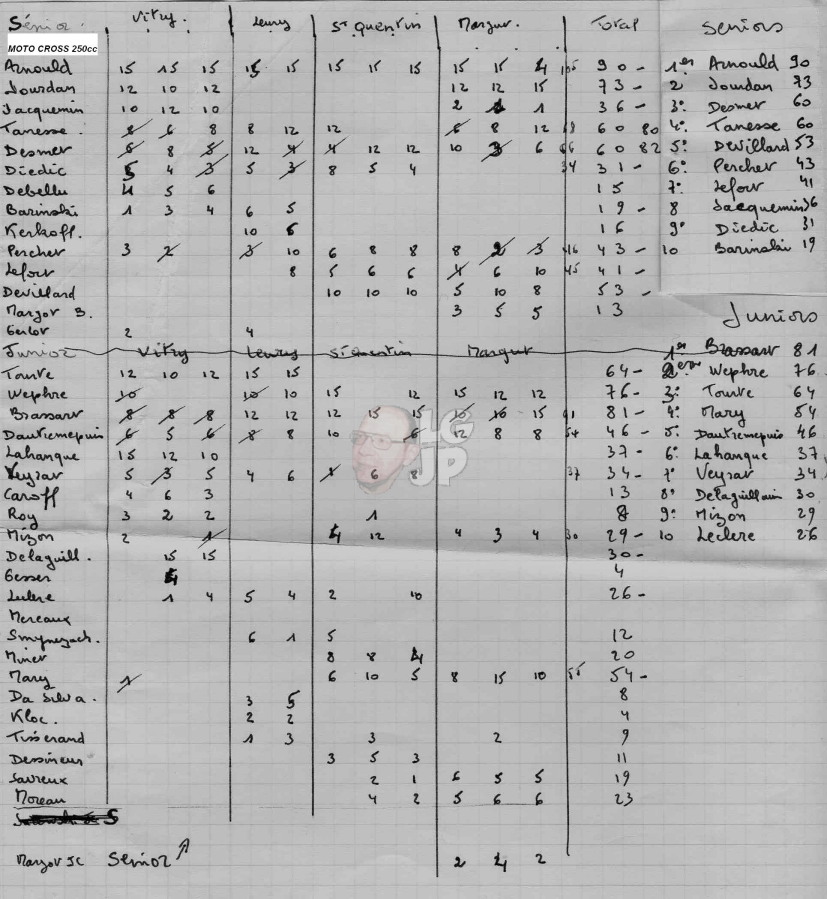 Sénior. Vitry. Leury St Quentin Margut. Total Seniors
MOTO CROSS 250cc
Arnould 15 15 15 15 15 15 15 15 15 15 4 90 - 1er Arnould 90
Jourdan 12 10 12 12 12 15 73 - 2 Jourdan 73
Jacquemin 10 12 10 2 1 1 36 - 3° Desmer 60
Tanesse. 8 6 8 8 12 12 6 8 12 60 80 4° Tanesse 60
Desmer 6 8 5 12 4 4 12 12 10 3 6 66 60 82 5° Devillard 53
Diedic 5 4 3 5 3 8 5 4 34 31 - 6° Percher 43
Debellu 4 5 6 15 7° Lefort 41
Barinski 1 3 4 6 5 19 - 8 Jacquemin 36
Kerkoff. 10 6 16 9° Diedic 31
Percher 3 2 3 10 6 8 8 8 2 3 46 43 - 10 Barinski 19
Lefort 8 5 6 6 4 6 10 45 41 -
Devillard 10 10 10 5 10 8 53 -
Margot B. 3 5 5 13
Gerlot 2 4
Juniors
Junior Vitry Leury St Quentin Margut 1er Brassart 81
Tourte 12 10 12 15 15 64 - 2eme Wephre 76
Wephre 10 10 10 15 12 15 12 12 76 - 3° Tourte 64
Brassart 8 8 8 12 12 12 15 15 10 10 15 91 81 - 4° Mary 54
Dautremepuis 6 5 6 8 8 10 6 12 8 8 54 46 - 5° Dautremepuis 46
Lahanque 15 12 10 37 - 6° Lahanque 37
Veyrat 5 3 5 4 6 1 6 8 37 34 - 7° Veyrat 34
Caroff 4 6 3 13 8° Delaguillain 30
Roy 3 2 2 1 8 9° Mizon 29
Mizon 2 1 4 12 4 3 4 30 29 - 10 Leclere 26
Delaguill. 15 15 30 -
Gesser 4 4
Leclere 1 4 5 4 2 10 26 -
Mereaux
Smynezach. 6 1 5 12
Minet 8 8 4 20
Mary 1 6 10 5 8 15 10 55 54 -
Da Silva. 3 5 8
Kloc. 2 2 4
Tisserand 1 3 3 2 9
Dessineur 3 5 3 11
Savreux 2 1 6 5 5 19
Moreau 4 2 5 6 6 23
Margot JC Senior 2 4 2
LG
JP